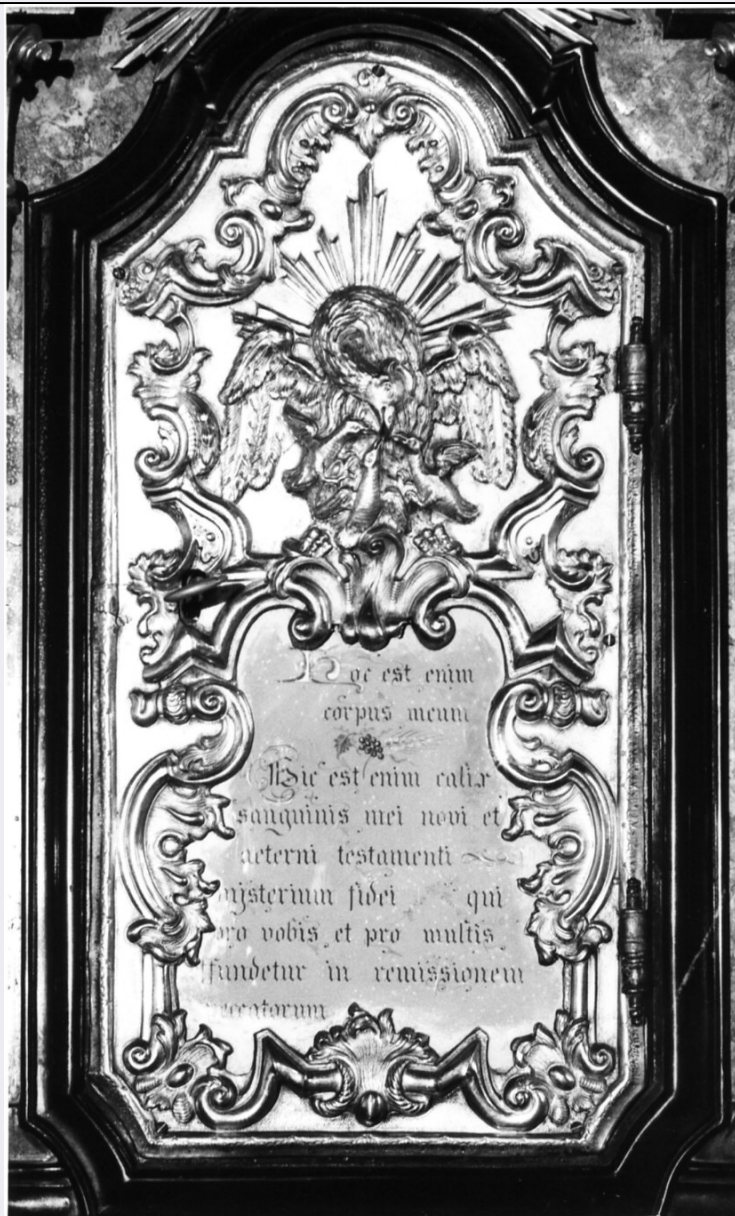 Hoc est enim
corpus meum
Hic est enim calix
sanguinis mei novi et
aeterni testamenti
misterium fidei qui
pro vobis et pro multis
fundetur in remissionem
peccatorum